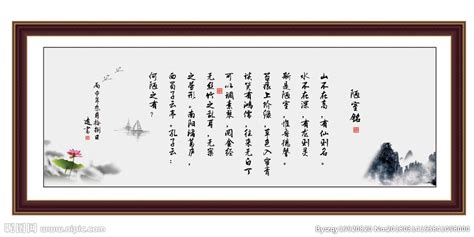 陋室铭
山不在高，有仙则名。
水不在深，有龙则灵。
斯是陋室，惟吾德馨。
苔痕上阶绿，草色入帘青
谈笑有鸿儒，往来无白丁
可以调素琴，阅金经
无丝竹之乱耳，无案
之劳形，南阳诸葛庐，
西蜀子云亭，孔子云：
何陋之有？
昵图网 www.nipic.com